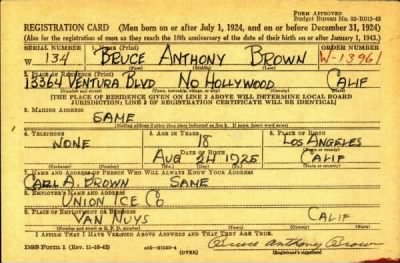 FORM APPROVED
Budget Bureau No. 33-R012-42
REGISTRATION CARD (Men born on or after July 1, 1924, and on or before December 31, 1924)
(Also for the registration of men as they reach the 18th anniversary of the date of their birth on or after January 1, 1943.)
SERIAL NUMBER 1. NAME (Print) ORDER NUMBER
W 134 BRUCE ANTHONY BROWN W-13961
(First) (Middle) (Last)
2. PLACE OF RESIDENCE (Print)
13364 VENTURA BLVD NO HOLLYWOOD CALIF
[THE PLACE OF RESIDENCE GIVEN ON LINE 2 ABOVE WILL DETERMINE LOCAL BOARD
JURISDICTION; LINE 2 OF REGISTRATION CERTIFICATE WILL BE IDENTICAL]
3. MAILING ADDRESS
SAME
[Mailing address if other than place indicated on line 2. If same, insert word same]
4. TELEPHONE 5. AGE IN YEARS 6. PLACE OF BIRTH
NONE 18 LOS ANGELES
DATE OF BIRTH
AUG 24 1925 CALIF
(Exchange) (Number) (Mo.) (Day) (Yr.) (State or country)
7. NAME AND ADDRESS OF PERSON WHO WILL ALWAYS KNOW YOUR ADDRESS
CARL A. BROWN SAME
8. EMPLOYER'S NAME AND ADDRESS
UNION ICE CO
9. PLACE OF EMPLOYMENT OR BUSINESS
VAN NUYS CALIF
I AFFIRM THAT I HAVE VERIFIED ABOVE ANSWERS AND THAT THEY ARE TRUE.
DSS Form 1 (Rev. 11-16-42) (OVER) Bruce Anthony Brown
(Registrant's signature)